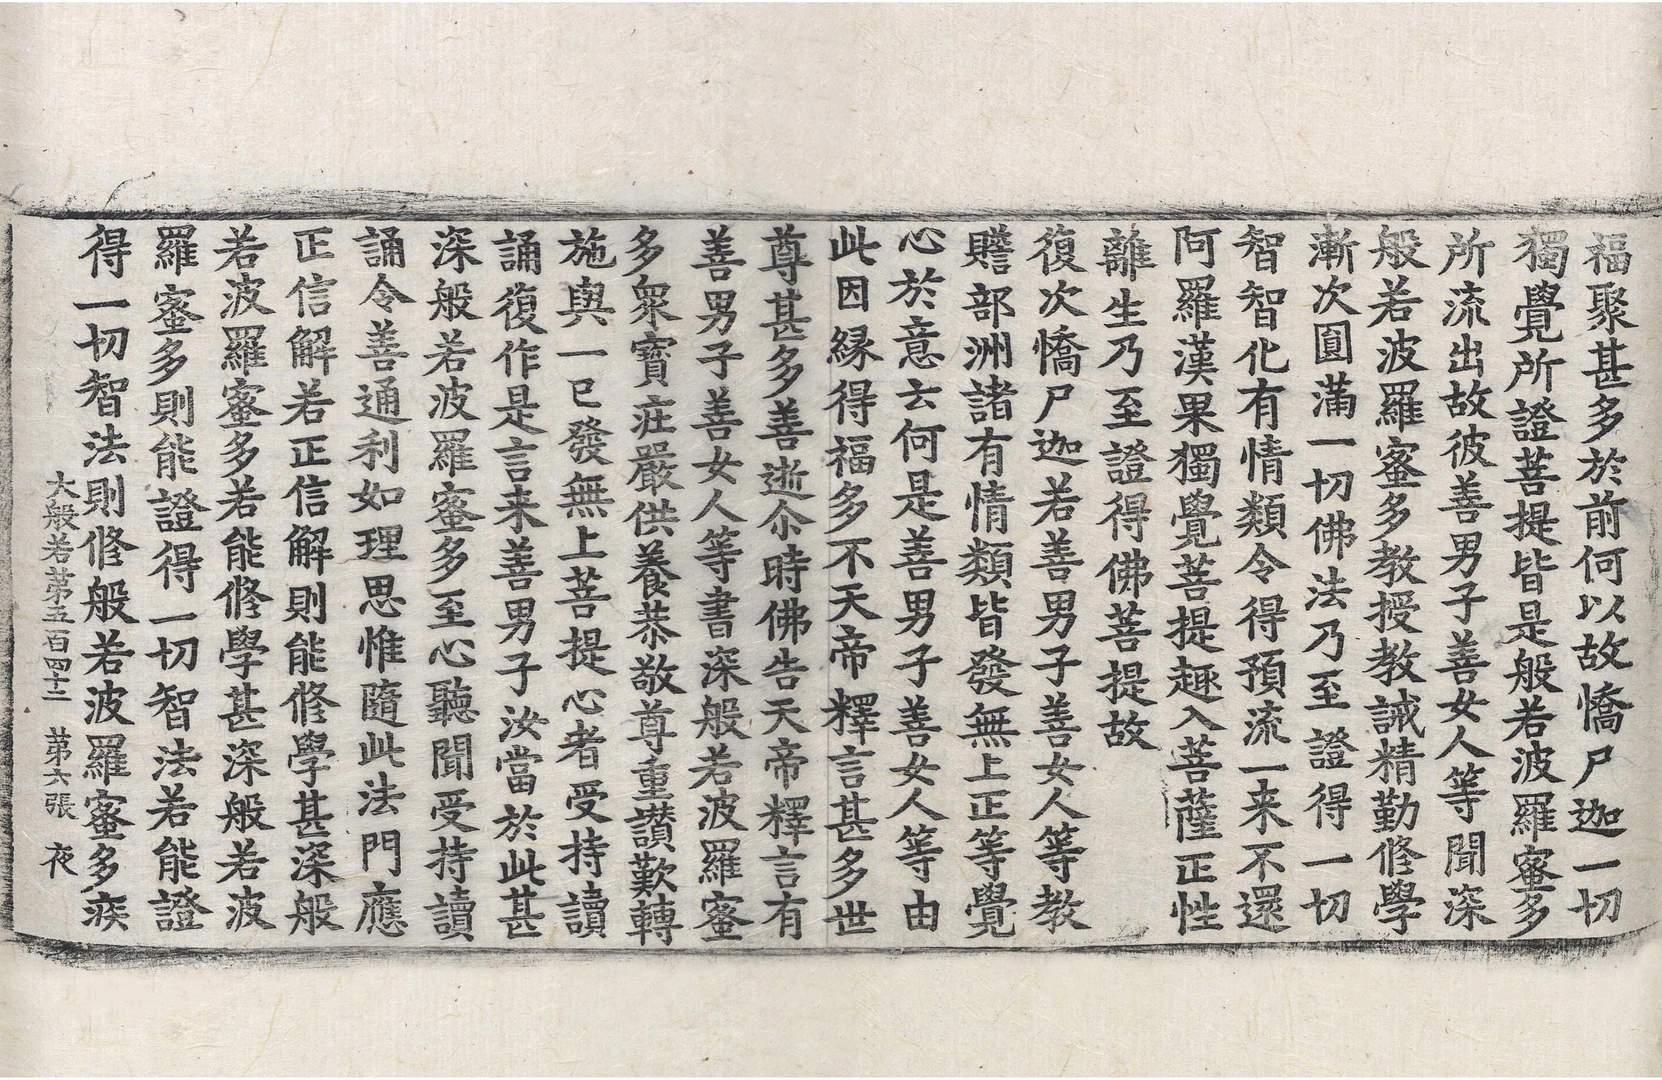 福聚甚多於前何以故憍尸迦一切
獨覺所證菩提皆是般若波羅蜜多
所流出故彼善男子善女人等聞深
般若波羅蜜多教授教誡精勤修學
漸次圓滿一切佛法乃至證得一切
智智化有情類令得預流一来不還
阿羅漢果獨覺菩提趣入菩薩正性
離生乃至證得佛菩提故
復次憍尸迦若善男子善女人等教
贍部洲諸有情類皆發無上正等覺
心於意云何是善男子善女人等由
此因縁得福多不天帝釋言甚多世
尊甚多善逝尒時佛告天帝釋言有
善男子善女人等書深般若波羅蜜
多衆寶莊嚴供養恭敬尊重讚歎轉
施與一已發無上菩提心者受持讀
誦復作是言来善男子汝當於此甚
深般若波羅蜜多至心聽聞受持讀
誦令善通利如理思惟隨此法門應
正信解若正信解則能修學甚深般
若波羅蜜多若能修學甚深般若波
羅蜜多則能證得一切智法若能證
得一切智法則修般若波羅蜜多疾
大般若苐五百四十二 苐六張 夜